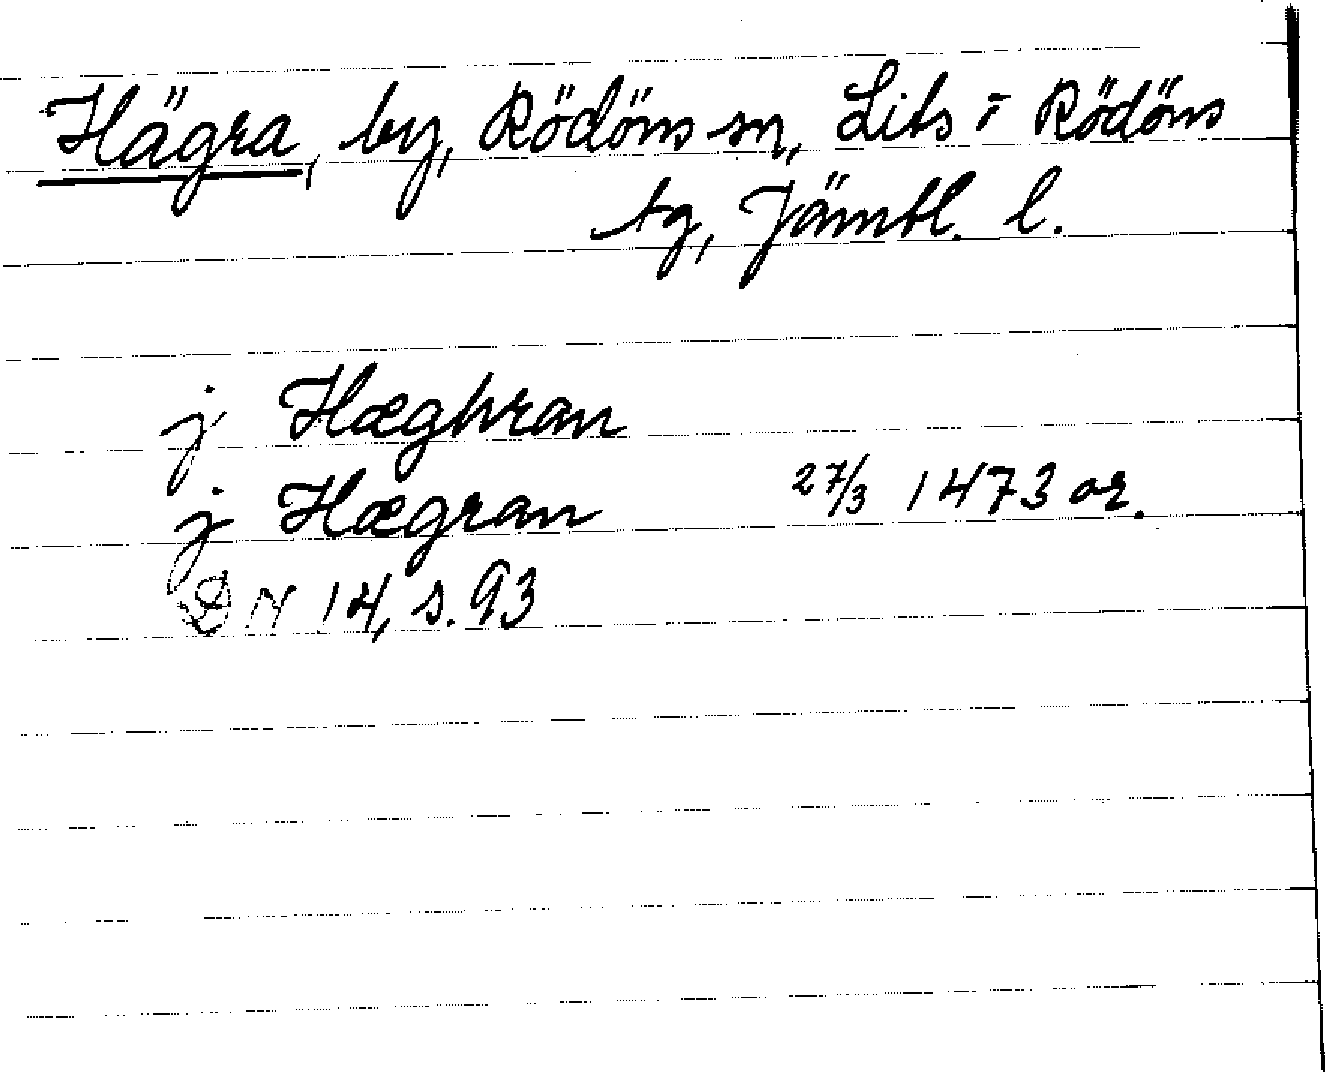 Hägra, by, Rödöns sn, Lits o Rödöns
tg, Jämtl. l.
j Hæghran
j Hægran 27/3 1473 or.
DN 14, s. 93